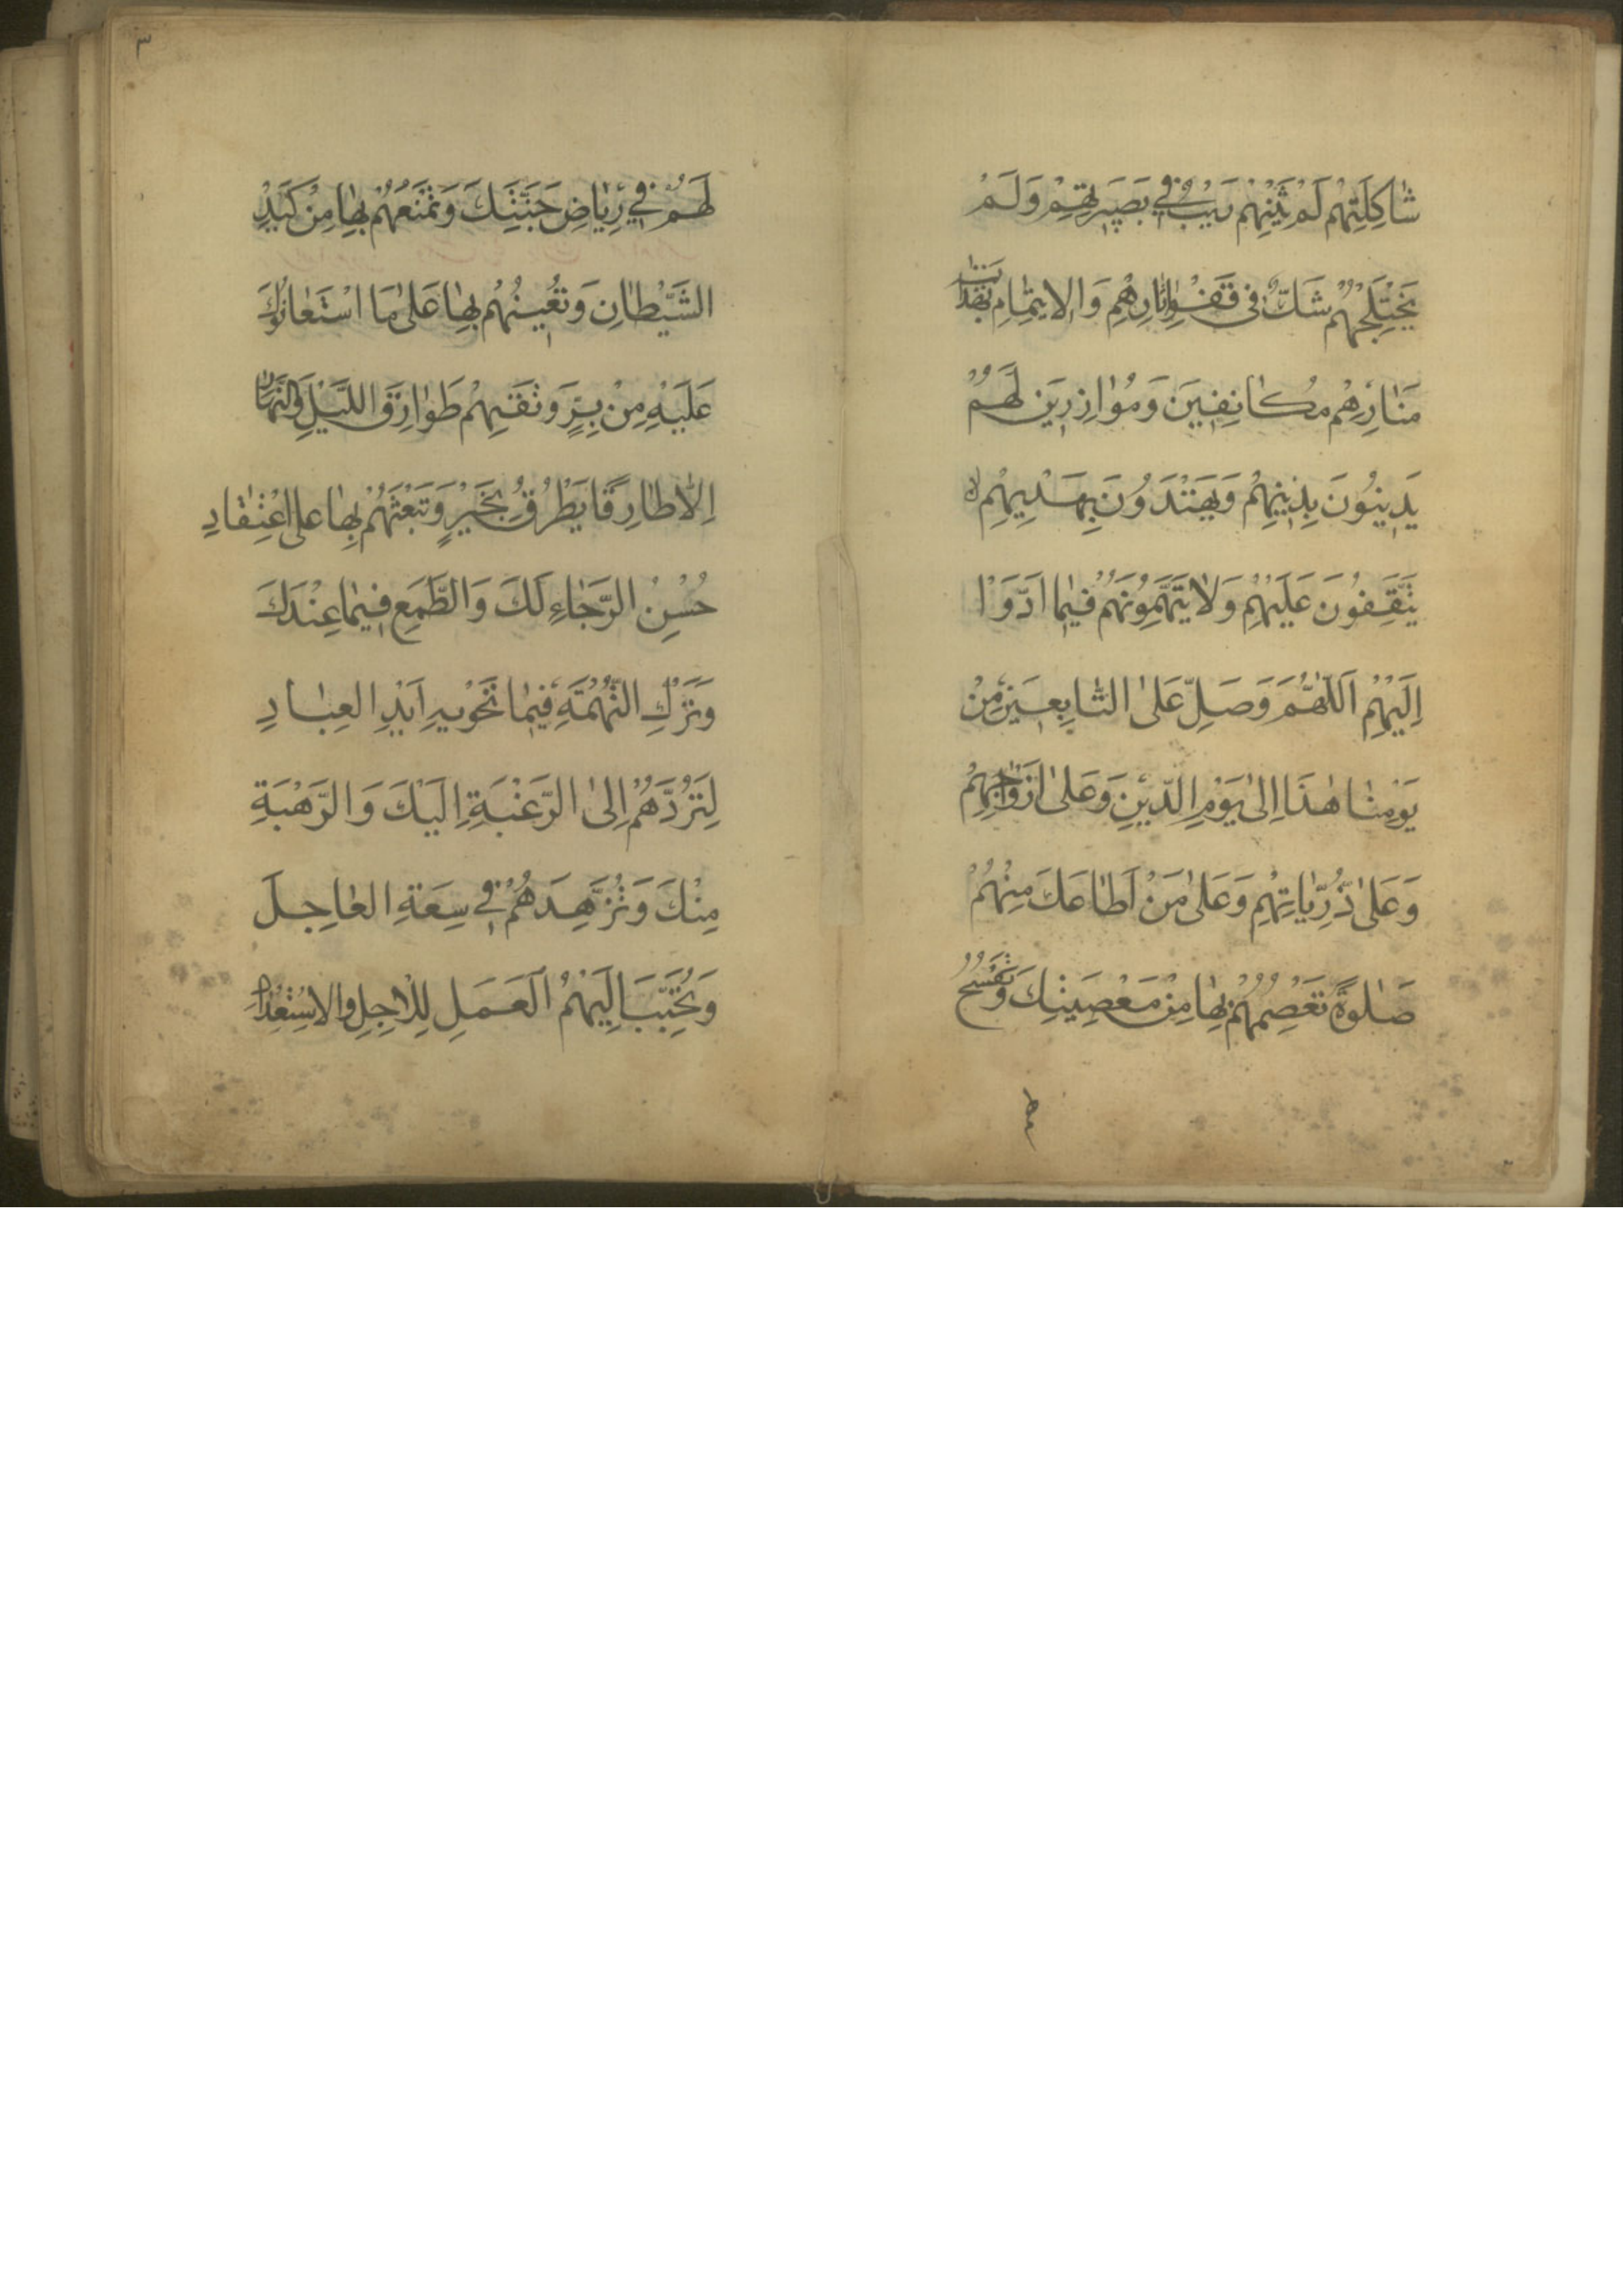 شَاكِلَتِهِمْ لَمْ يَثْنِهِمْ رَيْبٌ فِي بَصِيرَتِهِمْ وَلَمْ
يَخْتَلِجْهُمْ شَكٌّ فِي قَفْوِ اٰثَارِهِمْ وَالايتِمَامِ بِهِدَايَةِ
مَنَارِهِمْ مُكَانِفِينَ وَمُوَازِرِينَ لَهُمْ
يَدِينُونَ بِدِينِهِمْ وَيَهْتَدُونَ بِهَدْيِهِمْ
يَتَّفِقُونَ عَلَيْهِمْ وَلَا يَتَّهِمُونَهُمْ فِيمَا اَدَّوْا
اِلَيْهِمْ اَللّٰهُمَّ وَصَلِّ عَلَى التَّابِعِينَ مِنْ
يَوْمِنَا هٰذَا اِلىٰ يَوْمِ الدِّينِ وَعَلىٰ اَزْوَاجِهِمْ
وَعَلىٰ ذُرِّيَّاتِهِمْ وَعَلىٰ مَنْ اَطَاعَكَ مِنْهُمْ
صَلٰوةً تَعْصِمُهُمْ بِهَا مِنْ مَعْصِيَتِكَ وَتَفْسَحُ
٣
لَهُمْ فِي رِيَاضِ جَنَّتِكَ وَتَمْنَعُهُمْ بِهَا مِنْ كَيْدِ
الشَّيْطَانِ وَتُعِينُهُمْ بِهَا عَلىٰ مَا اسْتَعَانُوكَ
عَلَيْهِ مِنْ بِرٍّ وَتَقِيهِمْ طَوَارِقَ اللَّيْلِ وَالنَّهَارِ
اِلَّا طَارِقًا يَطْرُقُ بِخَيْرٍ وَتَبْعَثُهُمْ بِهَا عَلَى اعْتِقَادِ
حُسْنِ الرَّجَاءِ لَكَ وَالطَّمَعِ فِيمَا عِنْدَكَ
وَتَرْكِ التُّهْمَةِ فِيمَا تَحْوِيهِ اَيْدِي العِبَادِ
لِتَرُدَّهُمْ اِلىٰ الرَّغْبَةِ اِلَيْكَ وَالرَّهْبَةِ
مِنْكَ وَتُزَهِّدَهُمْ فِي سِعَةِ العَاجِلِ
وَتُحَبِّبَ اِلَيْهِمُ العَمَلَ لِلْاٰجِلِ وَالاسْتِعْدَادَ